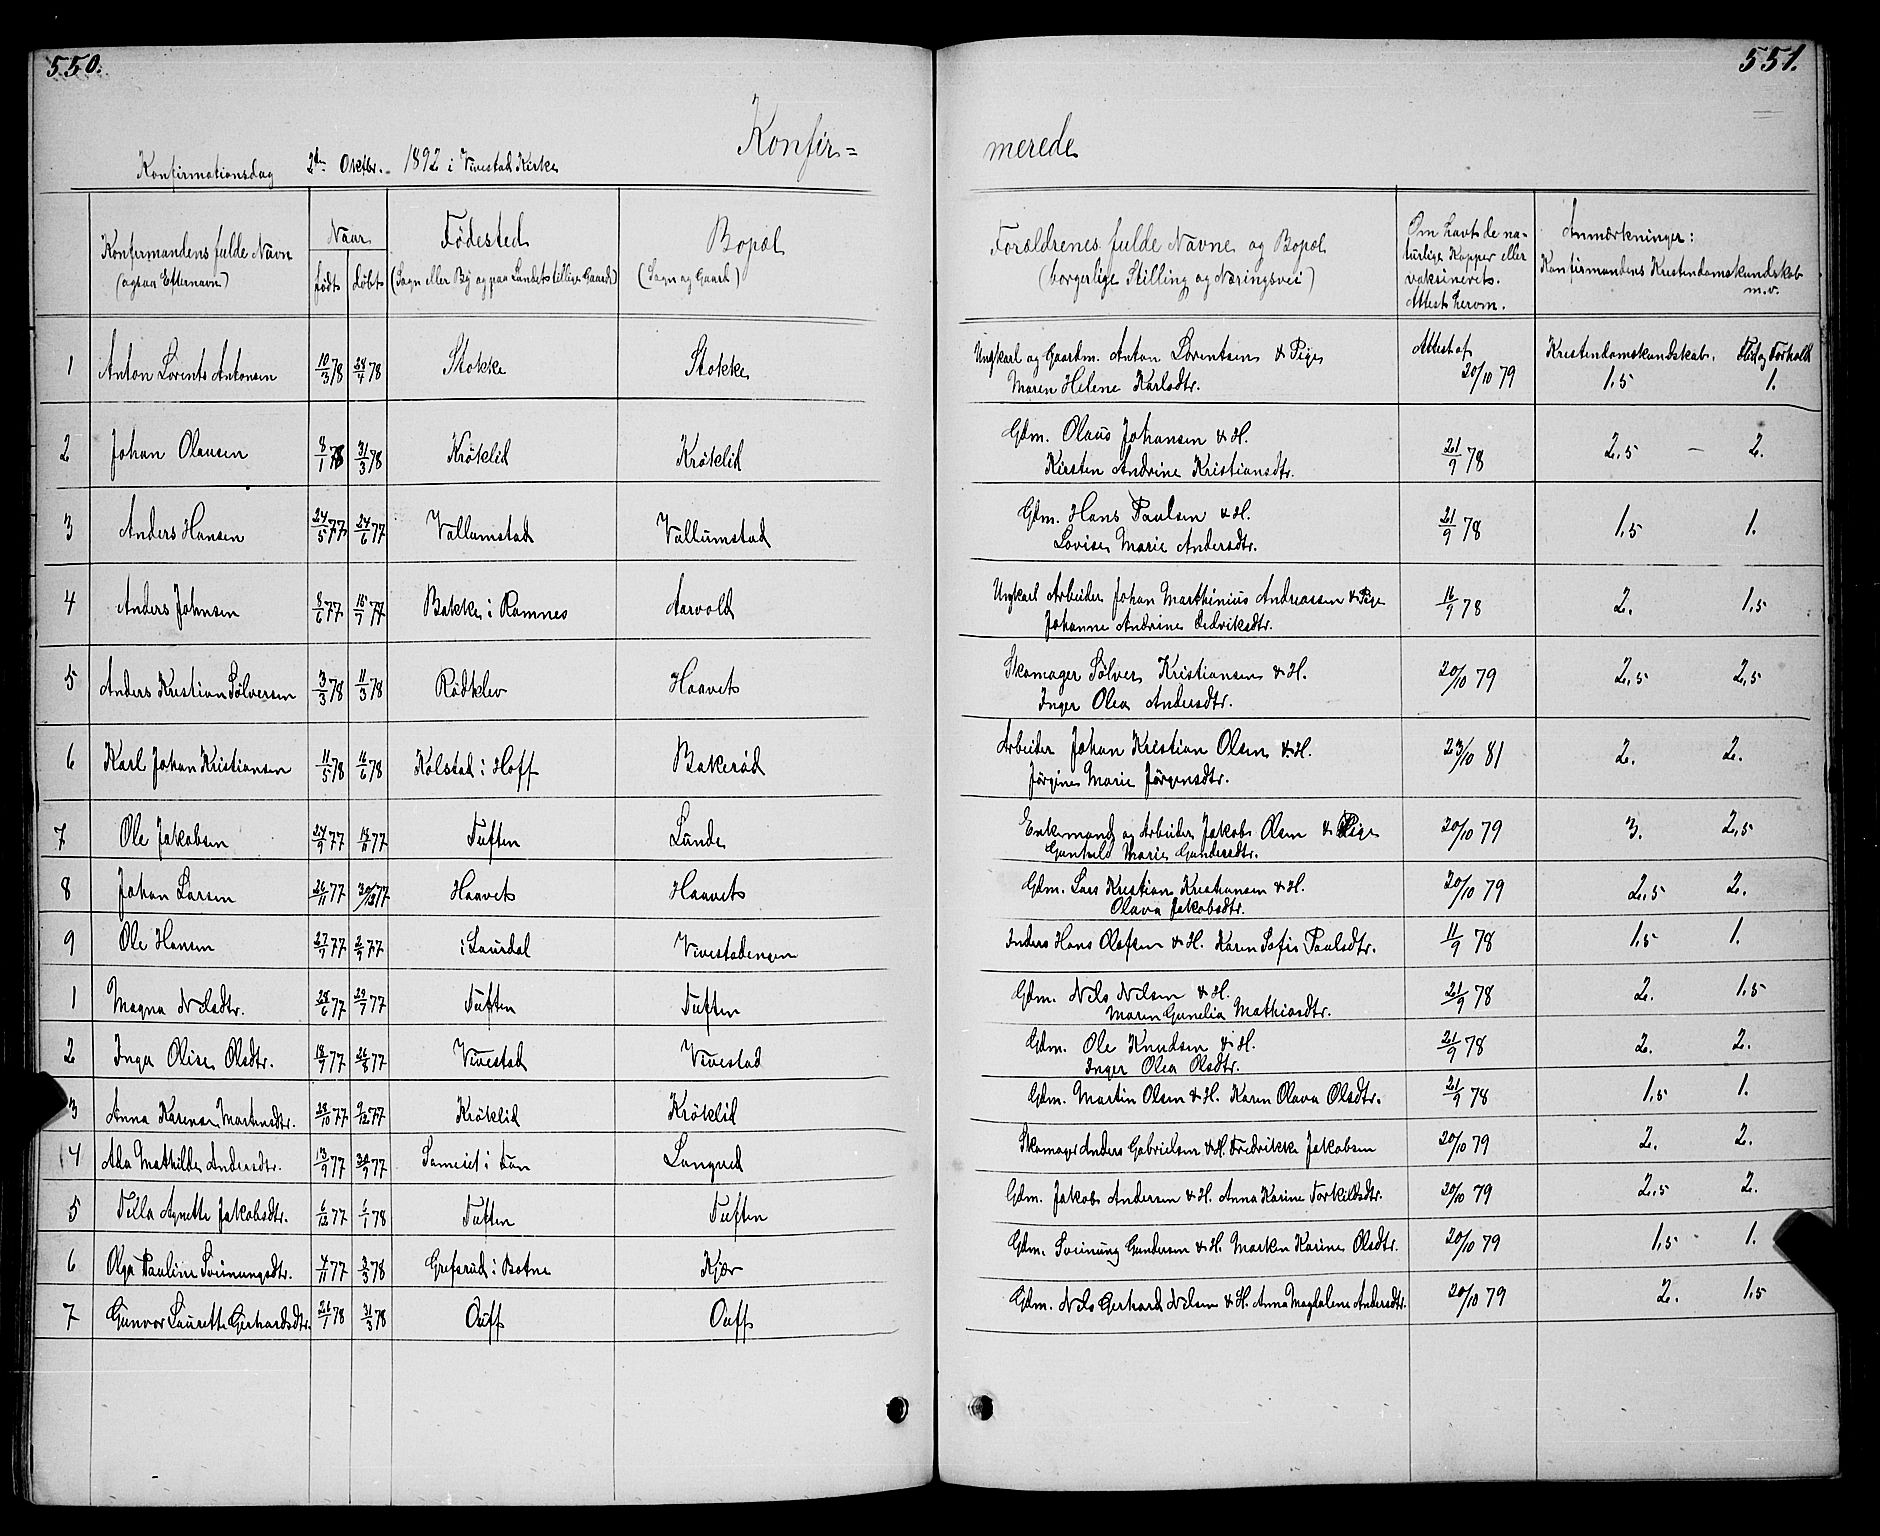 550.
Konfir=
Konfirmationsdag 2den Oktbr. 1892 i Vivestad Kirke
Konfirmandens fulde Navn (ogsaa Efternavn) | Naar født | døbt | Fødested (Sogn eller By og paa Landet tillige Gaard) | Bopæl (Sogn og Gaard)
1 Anton Lorents Antonsen 10/3 78 28/4 78 Stokke Stokke
2 Johan Olausen 8/1 78 31/3 78 Krøklid Krøklid
3 Anders Hansen 24/5 77 24/6 77 Vallumstad Vallumstad
4 Anders Johnsen 8/6 77 15/7 77 Bakke i Ramnes Aarvold
5 Anders Kristian Sølversen 3/3 78 11/3 78 Rødklev Haavet
6 Karl Johan Kristiansen 11/5 78 16/6 78 Kolstad i Hoff Bakerød
7 Ole Jakobsen 24/9 77 18/11 77 Tuften Lunde
8 Johan Larsen 26/11 77 30/12 77 Haavet Haavet
9 Ole Hansen 27/7 77 2/9 77 i Laurdal Vivestadengen
1 Magna Nilsdtr. 28/6 77 29/7 77 Tuften Tuften
2 Inga Olise Olsdtr. 18/7 77 26/8 77 Vivestad Vivestad
3 Anna Karense Martinsdtr. 28/10 77 9/12 77 Krøklid Krøklid
4 Ada Mathilde Andersdtr. 13/9 77 30/9 77 Sameiet i Fon Langved
5 Tilla Agnette Jakobsdtr. 6/12 77 6/1 78 Tuften Tuften
6 Olga Pauline Sveinungsdtr. 4/11 77 3/3 78 Grefsrud i Botne Kjær
7 Gunvor Laurette Gerhardsdtr. 26/1 78 31/3 78 Ouff Ouff
551.
merede
Forældrenes fulde Navne og Bopæl (borgerlige Stilling og Næringsvei) | Om havt de naturlige Kopper eller vaksineret. Attest herom. | Anmærkninger: Konfirmandens Kristendomskundskab m.v.
Ungkarl og Gaardm. Anton Lorentsen & Pige Attest af Kristendomskundskab. Flid og Forhold
Maren Helene Karlsdtr. 20/10 79 1,5 1.
Gdm. Olaus Johansen & H.
Kirsten Andrine Kristiansdtr. 21/9 78 2,5 – 2.
Gdm. Hans Paulsen & H.
Lovise Marie Andersdtr. 21/9 78 1,5 1.
Ungkarl Arbeider Johan Marthinius Andreassen & Pige
Johanne Andrine Hedviksdtr. 16/9 78 2. 1,5
Skomager Sølver Kristiansen & H.
Inger Olea Andersdtr. 20/10 79 2,5 2,5
Arbeider Johan Kristian Olsen & H.
Jørgine Marie Jørgensdtr. 23/10 81 2. 2.
Enkemand og Arbeider Jakob Olsen & Pige
Gunhild Marie Gundersdtr. 20/10 79 3. 2,5
Gdm. Lars Kristian Kristiansen & H.
Olava Jakobsdtr. 20/10 79 2,5 2.
Inders Hans Olefsen & H. Karen Sofie Paulsdtr. 11/9 78 1,5 1.
Gdm. Nils Nilsen & H.
Maren Gunelia Mathiasdtr. 21/9 78 2. 1,5
Gdm. Ole Knudsen & H.
Inger Olea Olsdtr. 21/9 78 2. 2.
Gdm. Martin Olsen & H. Karen Olava Olsdtr. 21/9 78 1,5 1.
Skomager Anders Gabrielsen & H. Fredrikke Jakobsen 20/10 79 2. 2.
Gdm. Jakob Andersen & H. Anna Karine Torkildsdtr. 20/10 79 2,5 2.
Gdm. Sveinung Gundersen & H. Marken Karine Olsdtr. 20/10 79 1,5 1.
Gdm. Nils Gerhard Nilsen & H. Anna Magdalene Andersdtr. 20/10 79 2. 1,5